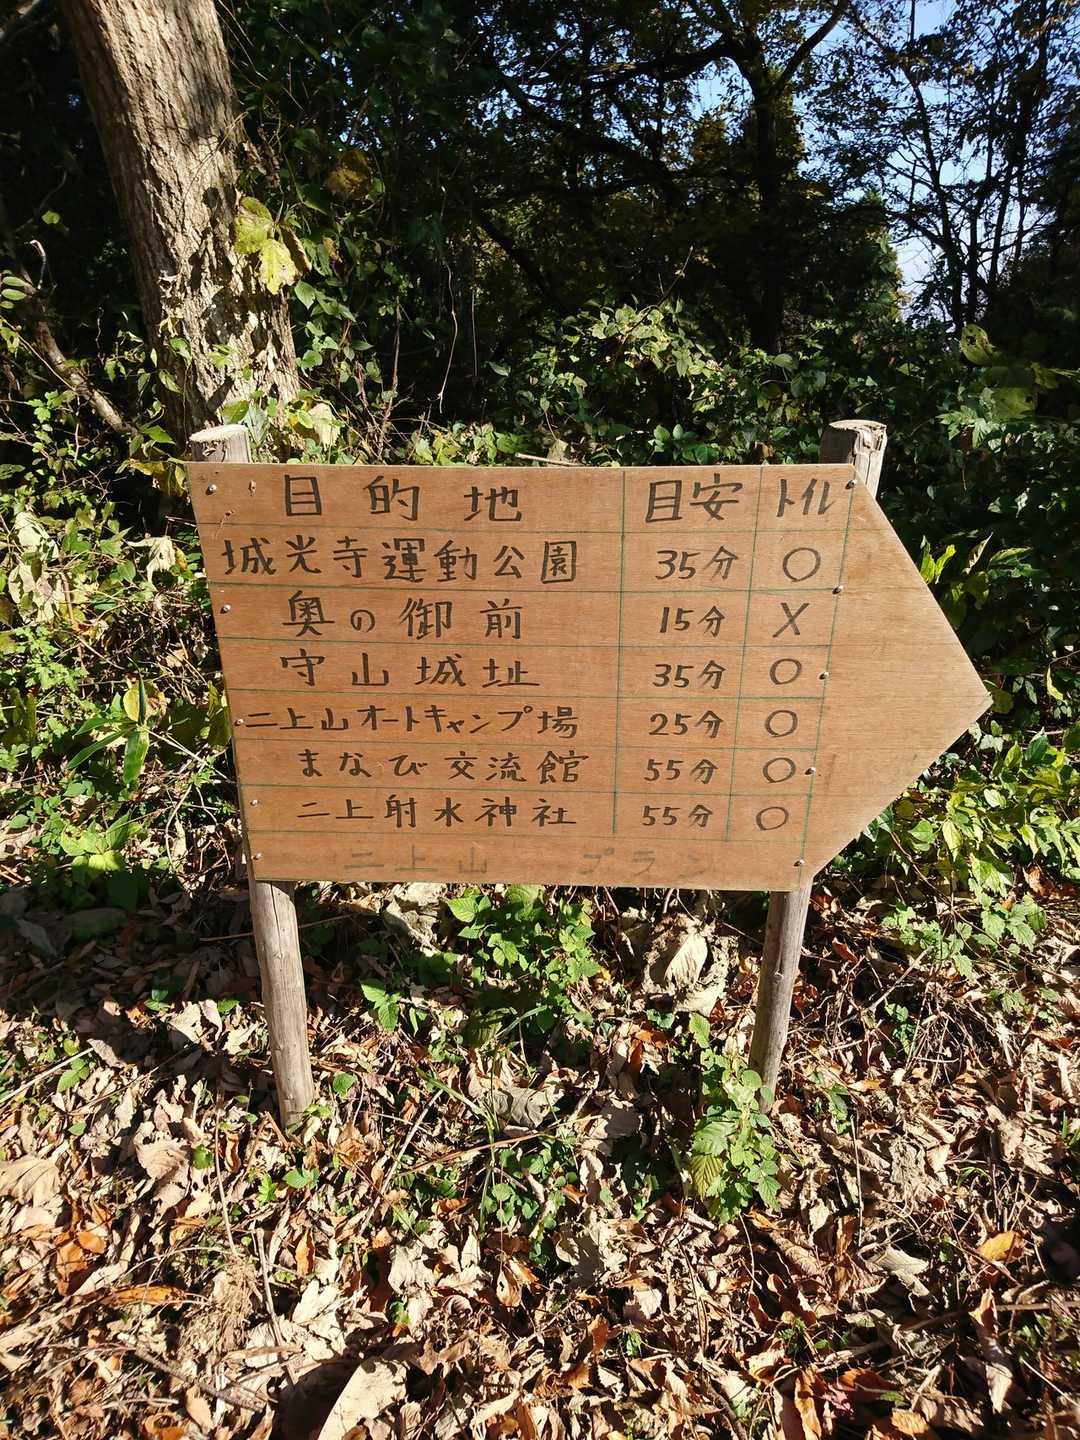 目的地 目安 トイレ
城光寺運動公園 35分 ○
奥の御前 15分 ×
守山城址 35分 ○
二上山オートキャンプ場 25分 ○
まなび交流館 55分 ○
二上射水神社 55分 ○
二上山 プラン